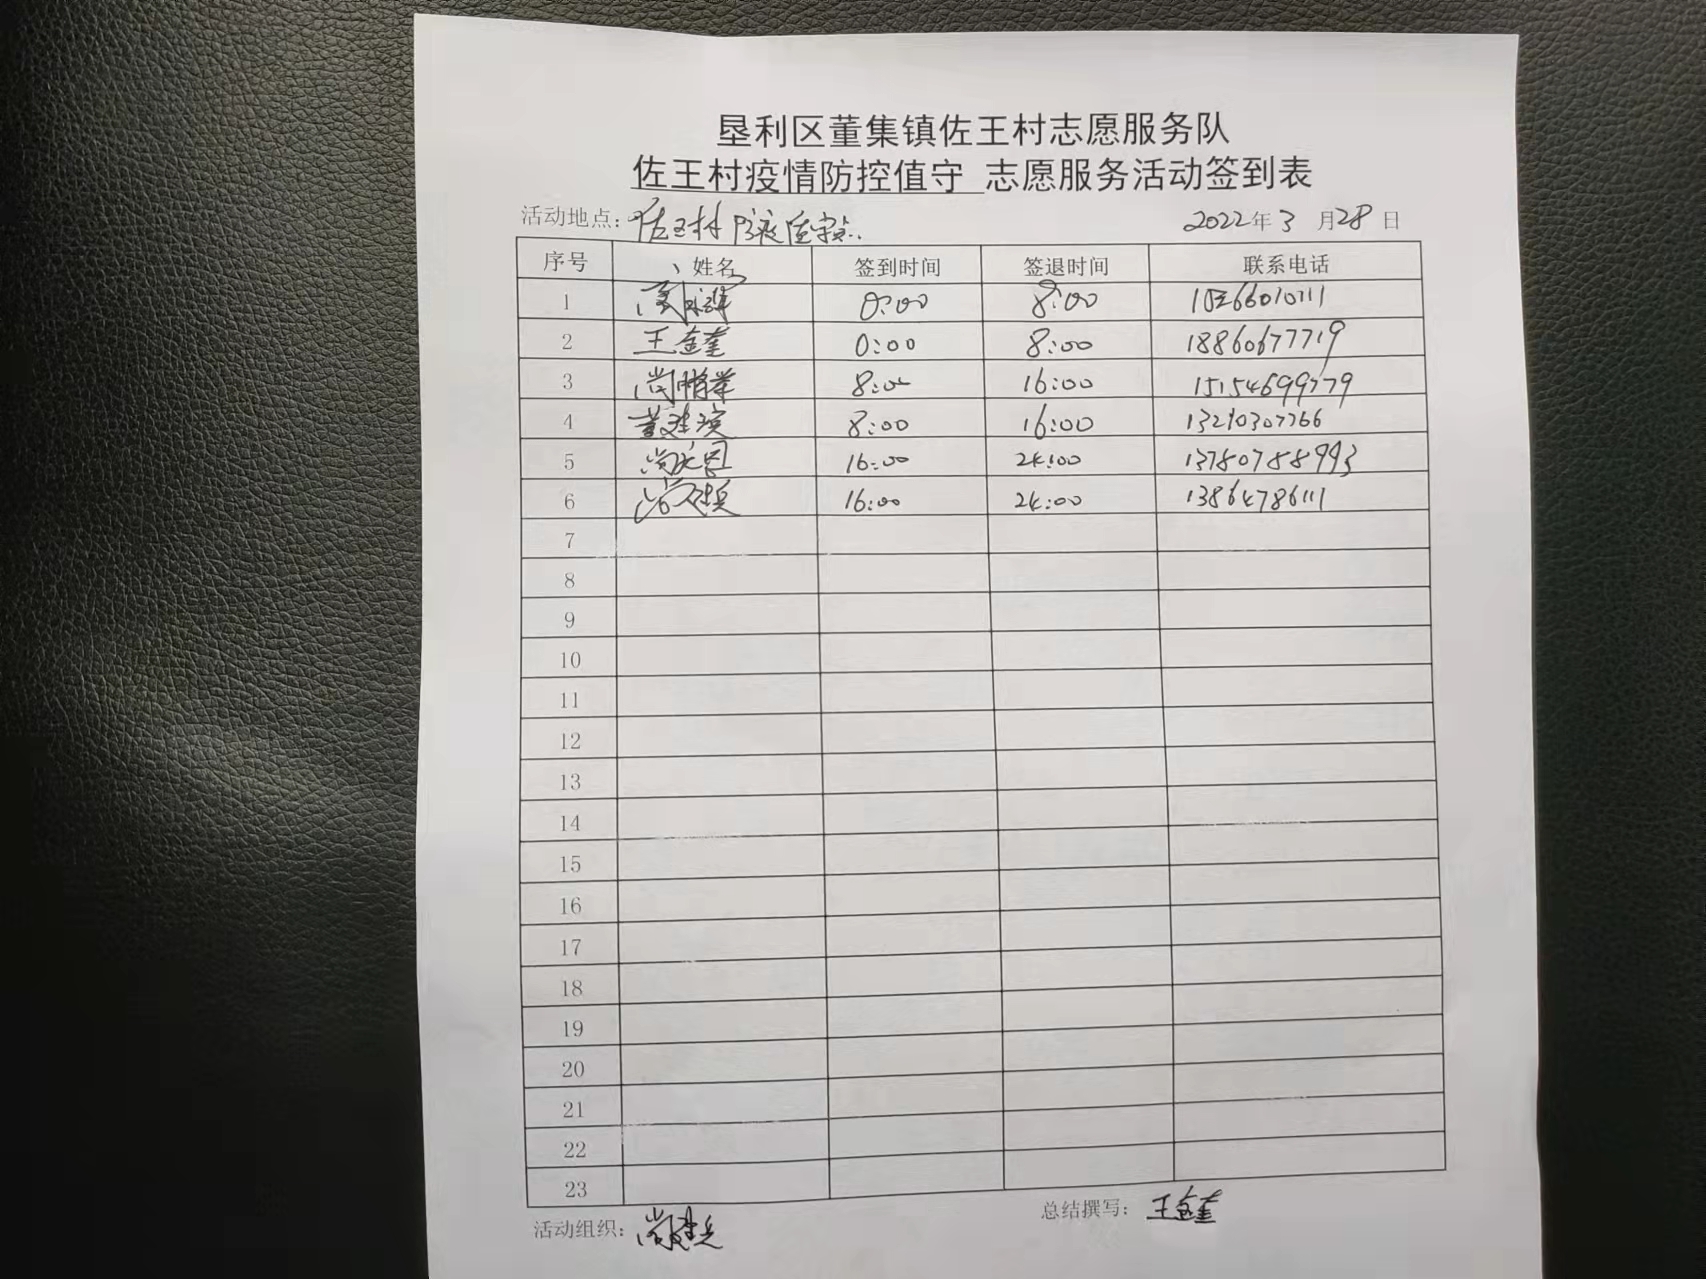 垦利区董集镇佐王村志愿服务队
佐王村疫情防控值守 志愿服务活动签到表
活动地点：佐王村防疫值守点. 2022年3月28日
序号 姓名 签到时间 签退时间 联系电话
1 0:00 8:00
2 王金奎 0:00 8:00 18860677719
3 尚鹏举 8:00 16:00 15154699779
4 董建滨 8:00 16:00 13210307766
5 16:00 24:00 13780788993
6 尚建兵 16:00 24:00 13864786111
7
8
9
10
11
12
13
14
15
16
17
18
19
20
21
22
23
活动组织：尚建兵 总结撰写：王金奎